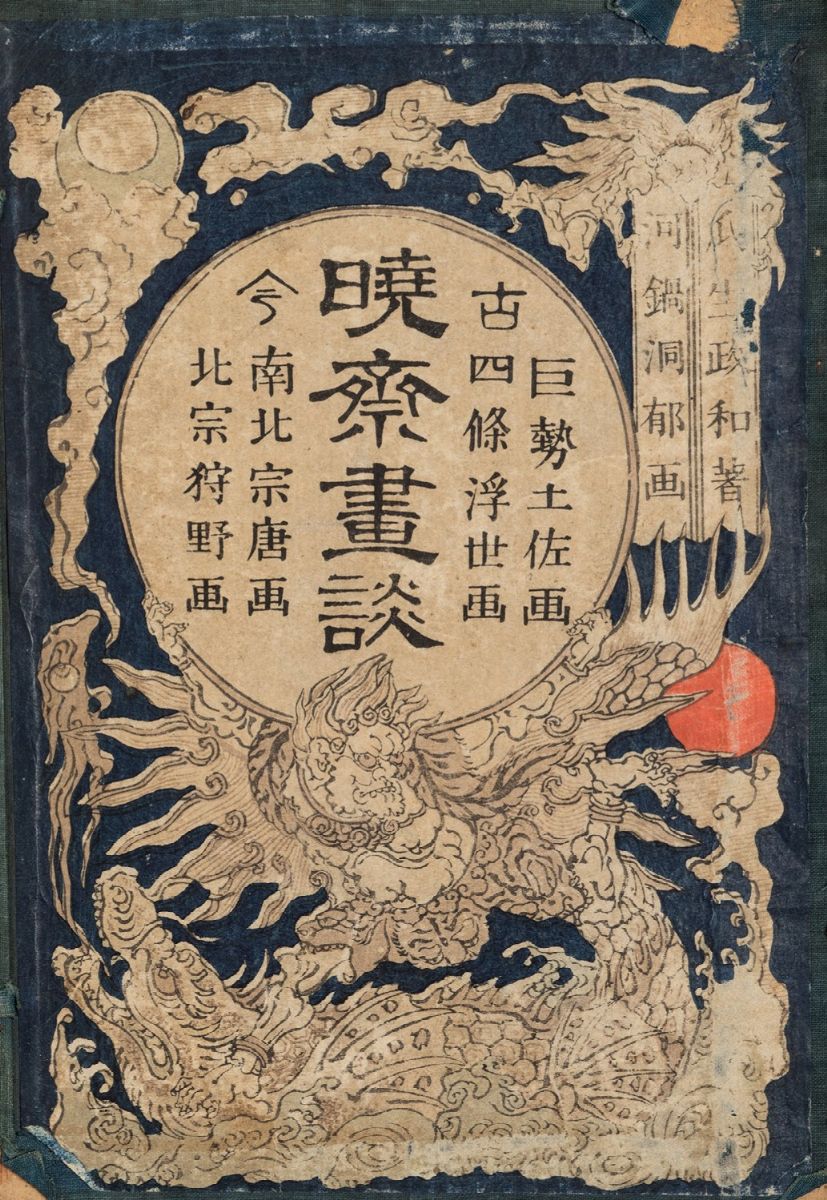 瓜生政和著
河鍋洞郁画
古
巨勢土佐画
四條浮世画
曉齋畫談
今
南北宗唐画
北宗狩野画